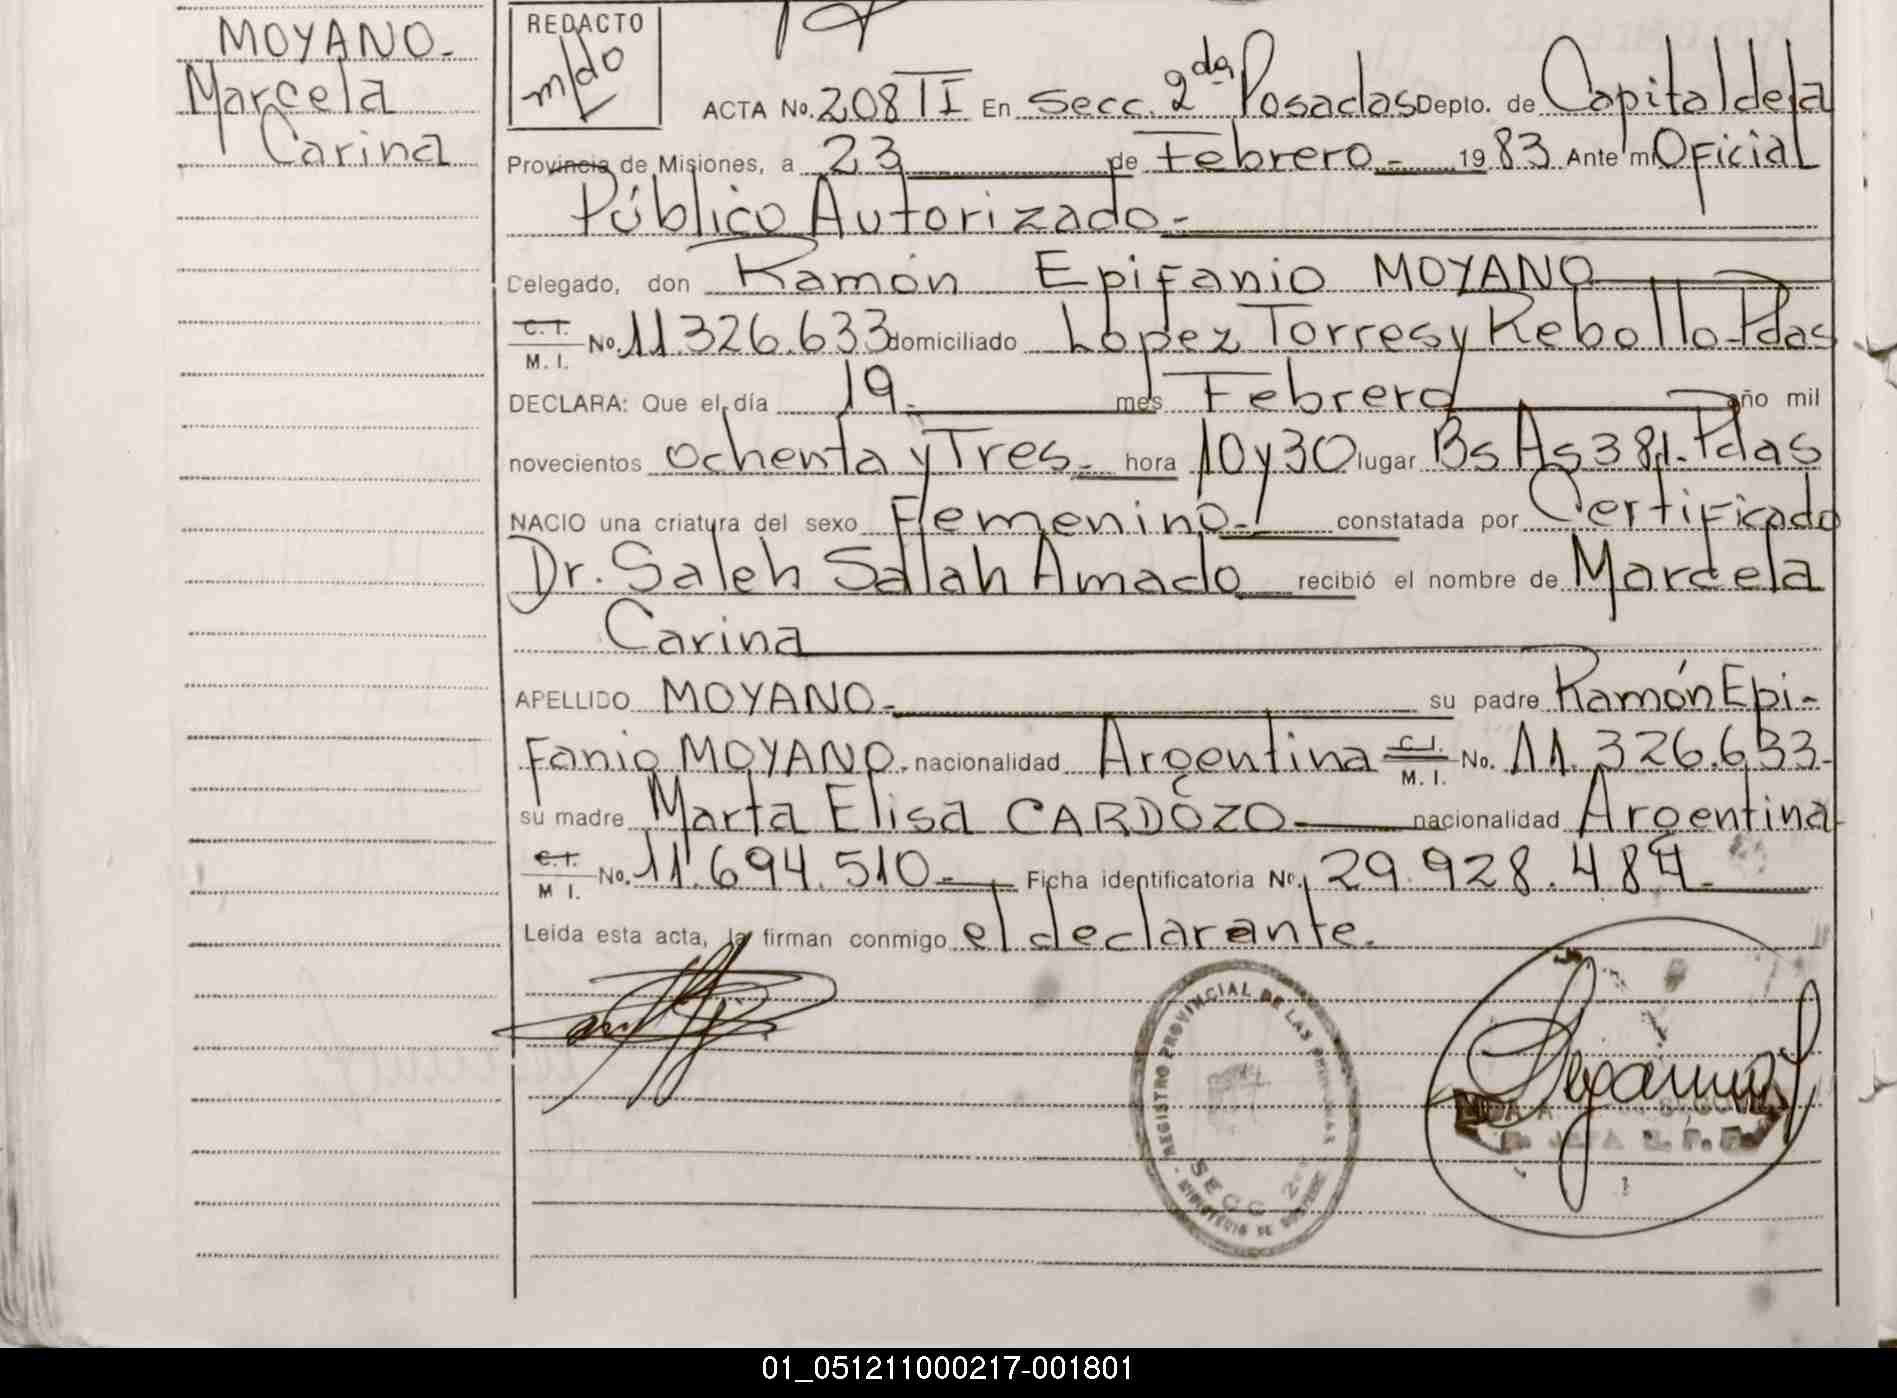 MOYANO-
Marcela
Carina
REDACTO
mldo
ACTA No. 208 TI En Secc. 2da Posadas Depto. de Capital de la
Provincia de Misiones, a 23 de Febrero - 19 83 Ante mi Oficial
Público Autorizado -
Delegado, don Ramón Epifanio MOYANO
C. I.
M. I. No. 11.326.633 domiciliado López Torres y Rebollo-Pdas
DECLARA: Que el día 19- mes Febrero año mil
novecientos ochenta y Tres - hora 10 y 30 lugar Bs As 381. Pdas
NACIO una criatura del sexo Femenino - constatada por Certificado
Dr. Saleh Sallah Amado recibió el nombre de Marcela
Carina
APELLIDO MOYANO - su padre Ramón Epi-
fanio MOYANO. nacionalidad Argentina C.I. M. I. No. 11.326.633-
su madre Marta Elisa CARDOZO nacionalidad Argentina
C.I. M I. No. 11.694.510 - Ficha identificatoria Nr. 29.928.484-
Leida esta acta, la firman conmigo el declarante.
REGISTRO PROVINCIAL DE LAS PERSONAS
SECC 2
MINISTERIO DE GOBIERNO
01_051211000217-001801